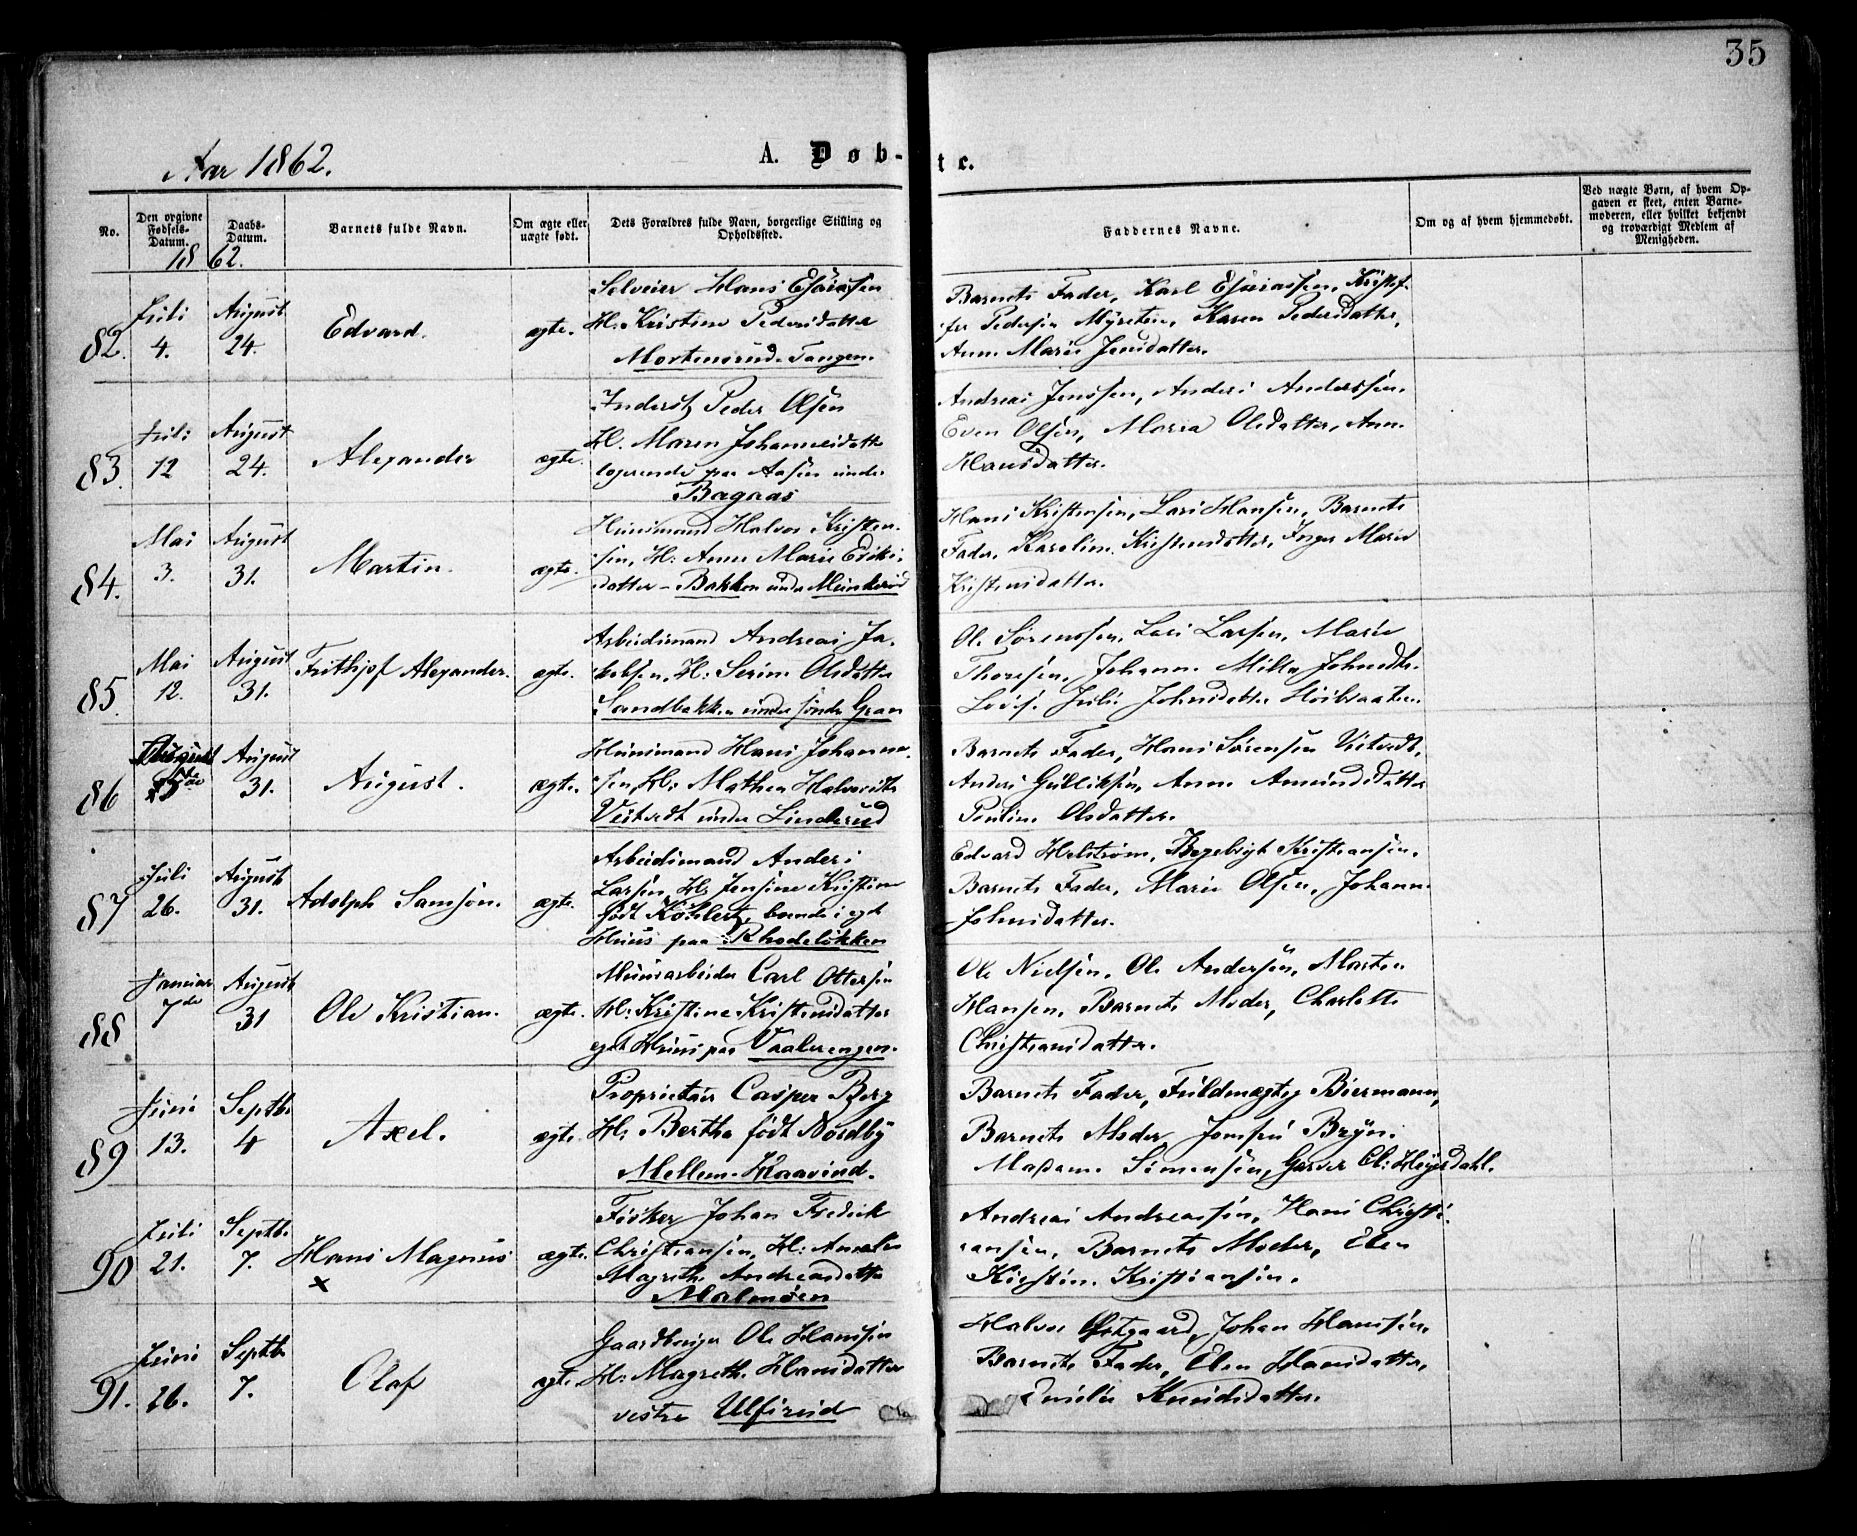 35
Aar 1862.
A. Døb-te.
No.
Den opgivne Fødsels-Datum.
Daabs-Datum.
Barnets fulde Navn.
Om ægte eller uægte født.
Dets Forældres fulde Navn, borgerlige Stilling og Opholdssted.
Faddernes Navne.
Om og af hvem hjemmedøbt.
Ved uægte Børn, af hvem Op-
gaven er skeet, enten Barne-
moderen, eller hvilket bekjendt
og troværdigt Medlem af
Menigheden.
1862.
82.
Juli
4.
August
24.
Edvard.
ægte.
Selveier Hans Esaiasen
H: Kristine Pedersdatter
Mortensrud-Tangen.
Barnets Fader, Karl Esaiassen, Kristof-
fer Pedersen Myreten, Karen Pedersdatter,
Anne Marie Jensdatter.
83.
Juli
12
August
24.
Alexander
ægte.
Inderst Peder Olsen
H. Maren Johannesdatter
logerende paa Aasen under
Bagaas
Andreas Jenssen, Anders Anderssen.
Even Olsen, Maria Olsdatter, Anne
Hansdatter.
84.
Mai
3.
August
31.
Martin.
ægte.
Huusmand Halvor Kristen-
sen, H: Anne Marie Eriks-
datter - Bakken under Munkerud
Hans Kristensen, Lars Hansen, Barnets
Fader, Karoline Kristensdatter, Inger Marie
Kristensdatter.
85.
Mai
12.
August
31.
Frithjof Alexander.
ægte.
Arbeidsmand Andreas Ja-
kobsen, H: Serine Olsdatter
Sandbakken under søndre Gran
Ole Sørenssen, Lars Larsen, Marie
Thoresen, Johanne Milla Johnsdtr.
Julie Johnsdatter Høibraaten.
86
August
August
31.
August.
ægte.
Huusmand Hans Johanne-
sen, H: Mathea Halvorsdtr
Veitvedt under Linderud
Barnets Fader, Hans Sørensen Veitvedt,
Anders Gulliksen, Anne Amundsdatter
Pouline Olsdatter.
87
Juli
26.
August
31.
Adolph Samson.
ægte.
Arbeidsmand Anders
Larsen, H: Jensine Kristine
født Köhlert, boende i eget
Huus paa Rhodeløkken
Edvard Helstrøm, Ingebrigt Kristiansen.
Barnets Fader, Marie Olsen, Johanne
Johnsdatter.
88
Januar
7de
August
31
Ole Kristian.
ægte.
Muurarbeider Carl Ottersen
H: Kristine Kristensdatter
eget Huus paa Vaalerengen.
Ole Nielsen, Ole Andersen, Morten
Hansen, Barnets Moder, Charlotte
Christiansdatter.
89
Juni
13.
Septbr.
4
Axel.
ægte.
Proprietær Casper Berg
H: Bertha født Nordby
Mellem-Haavind.
Barnets Fader, Fuldmægtig Biermann,
Barnets Moder, Jomfru Bryn.
Madame Simensen, Garver Cl: Heyerdahl.
90
Juli
21.
Septbr.
7.
Hans Magnus
x
ægte.
Fisker Johan Fredrik
Christiansen, H: Amalie
Magrethe Andreasdatter
Malmøen
Andreas Andreassen, Hans Christi-
ansen, Barnets Moder, Elen
Kirstine Kristiansen.
91.
Juni
26.
Septbr.
7.
Olaf
ægte.
Gaardbruger Ole Hansen
H: Magrethe Hansdatter
vestre Ulfsrud
Halvor Østgaard, Johan Hansen,
Barnets Fader, Elen Hansdatter,
Emilie Knudsdatter.